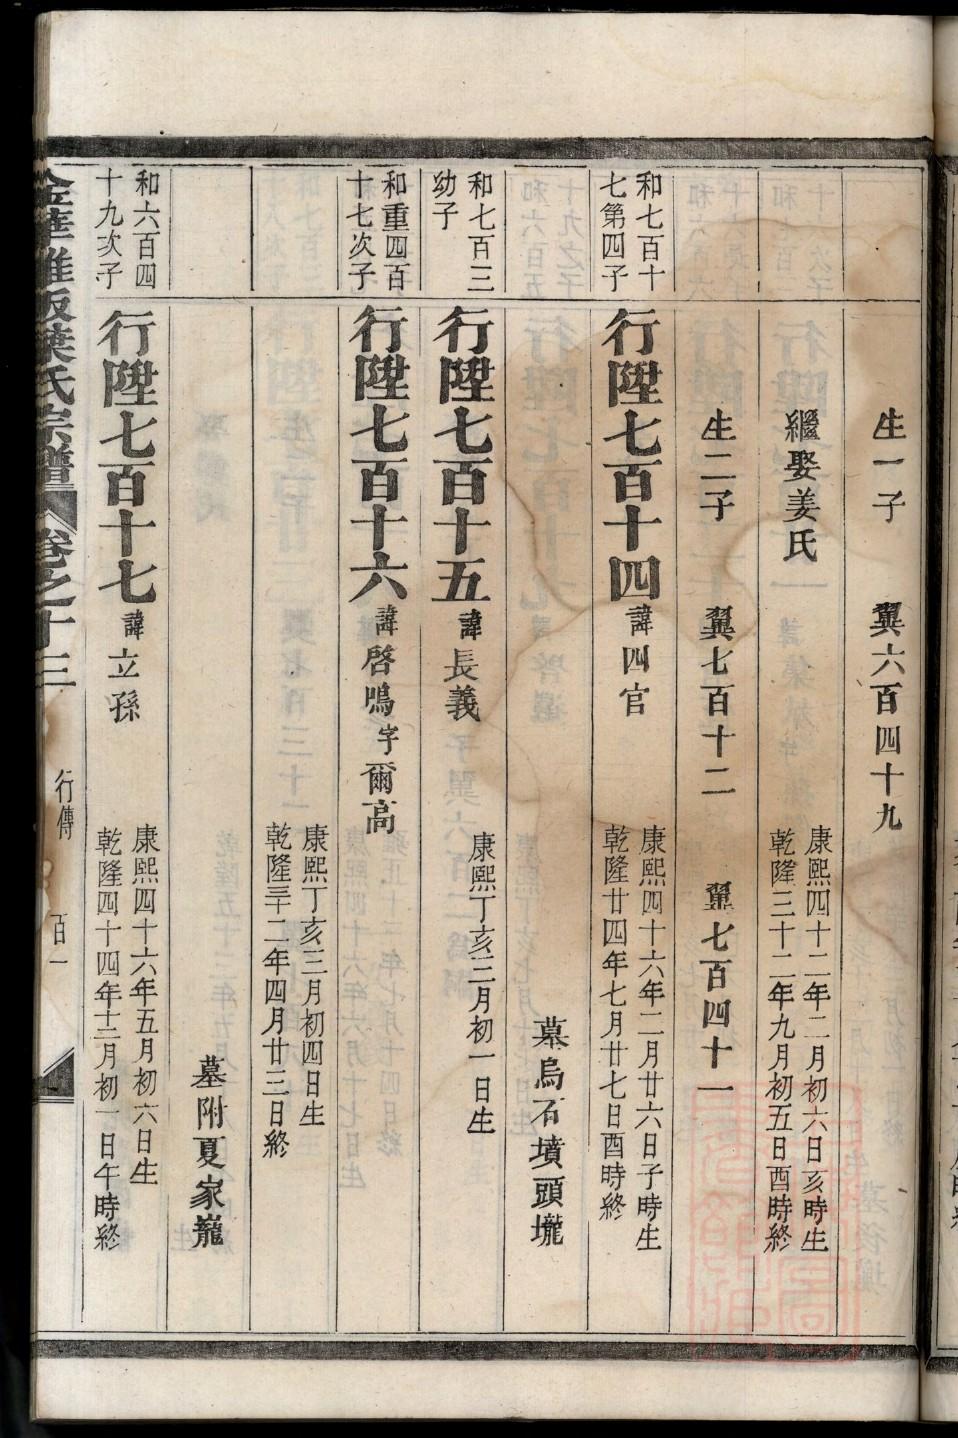 生一子 翼六百四十九
繼娶姜氏 康熙四十二年二月初六日亥時生
乾隆三十二年九月初五日酉時終
生二子 翼七百十二 翼七百四十一
和七百十
七第四子
行陞七百十四 諱四官 康熙四十六年二月廿六日子時生
乾隆廿四年七月廿七日酉時終
墓烏石墳頭壠
和七百三
幼子
行陞七百十五 諱長義 康熙丁亥三月初一日生
和重四百
十七次子
行陞七百十六 諱啓鳴 字爾高
康熙丁亥三月初四日生
乾隆三十二年四月廿三日終
墓附夏家巃
和六百四
十九次子
行陞七百十七 諱立孫 康熙四十六年五月初六日生
乾隆四十四年十二月初一日午時終
金華 氏宗譜 卷之十三 行傳 百一